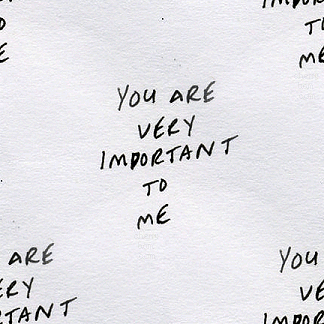 TO
ME
YOU ARE
VERY
IMPORTANT
TO
ME
ARE
ERY
RTANT
YOU
VE
IMPOR